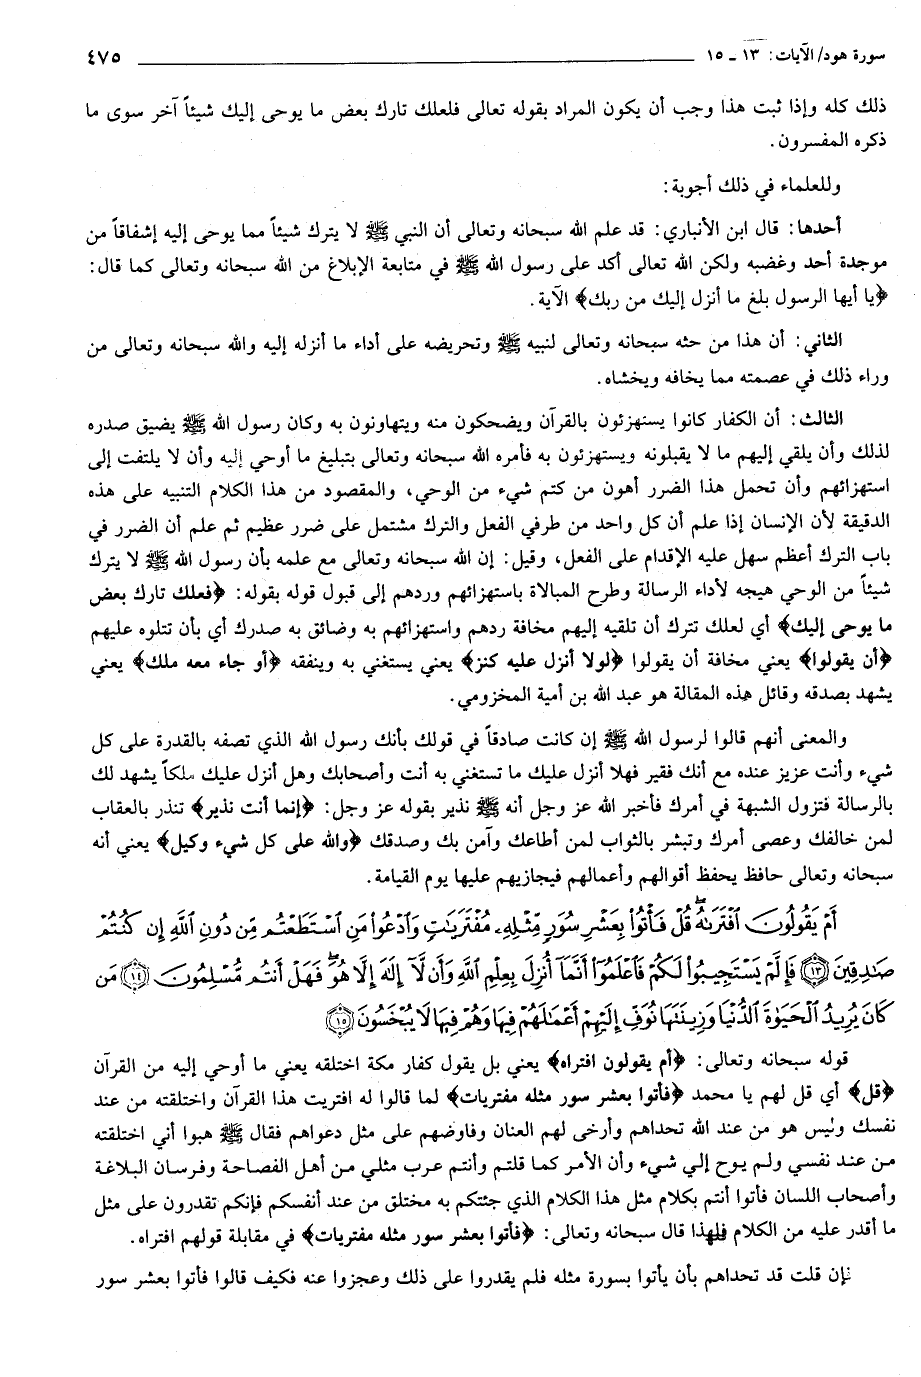 سورة هود/ الآيات: ١٣ ـ ١٥ ٤٧٥
ذلك كله وإذا ثبت هذا وجب أن يكون المراد بقوله تعالى فلعلك تارك بعض ما يوحى إليك شيئاً آخر سوى ما
ذكره المفسرون.
وللعلماء في ذلك أجوبة:
أحدها: قال ابن الأنباري: قد علم الله سبحانه وتعالى أن النبي ﷺ لا يترك شيئاً مما يوحى إليه إشفاقاً من
موجدة أحد وغضبه ولكن الله تعالى أكد على رسول الله ﷺ في متابعة الإبلاغ من الله سبحانه وتعالى كما قال:
﴿يا أيها الرسول بلغ ما أنزل إليك من ربك﴾ الآية.
الثاني: أن هذا من حثه سبحانه وتعالى لنبيه ﷺ وتحريضه على أداء ما أنزله إليه والله سبحانه وتعالى من
وراء ذلك في عصمته مما يخافه ويخشاه.
الثالث: أن الكفار كانوا يستهزئون بالقرآن ويضحكون منه ويتهاونون به وكان رسول الله ﷺ يضيق صدره
لذلك وأن يلقي إليهم ما لا يقبلونه ويستهزئون به فأمره الله سبحانه وتعالى بتبليغ ما أوحي إليه وأن لا يلتفت إلى
استهزائهم وأن تحمل هذا الضرر أهون من كتم شيء من الوحي، والمقصود من هذا الكلام التنبيه على هذه
الدقيقة لأن الإنسان إذا علم أن كل واحد من طرفي الفعل والترك مشتمل على ضرر عظيم ثم علم أن الضرر في
باب الترك أعظم سهل عليه الإقدام على الفعل، وقيل: إن الله سبحانه وتعالى مع علمه بأن رسول الله ﷺ لا يترك
شيئاً من الوحي هيجه لأداء الرسالة وطرح المبالاة باستهزائهم وردهم إلى قبول قوله بقوله: ﴿فعلك تارك بعض
ما يوحى إليك﴾ أي لعلك تترك أن تلقيه إليهم مخافة ردهم واستهزائهم به وضائق به صدرك أي بأن تتلوه عليهم
﴿أن يقولوا﴾ يعني مخافة أن يقولوا ﴿لولا أنزل عليه كنز﴾ يعني يستغني به وينفقه ﴿أو جاء معه ملك﴾ يعني
يشهد بصدقه وقائل هذه المقالة هو عبد الله بن أمية المخزومي.
والمعنى أنهم قالوا لرسول الله ﷺ إن كانت صادقاً في قولك بأنك رسول الله الذي تصفه بالقدرة على كل
شيء وأنت عزيز عنده مع أنك فقير فهلا أنزل عليك ما تستغني به أنت وأصحابك وهل أنزل عليك ملكاً يشهد لك
بالرسالة فتزول الشبهة في أمرك فأخبر الله عز وجل أنه ﷺ نذير بقوله عز وجل: ﴿إنما أنت نذير﴾ تنذر بالعقاب
لمن خالفك وعصى أمرك وتبشر بالثواب لمن أطاعك وآمن بك وصدقك ﴿والله على كل شيء وكيل﴾ يعني أنه
سبحانه وتعالى حافظ يحفظ أقوالهم وأعمالهم فيجازيهم عليها يوم القيامة.
أَمْ يَقُولُونَ ٱفْتَرَىٰهُ ۖ قُلْ فَأْتُوا۟ بِعَشْرِ سُوَرٍ مِّثْلِهِۦ مُفْتَرَيَـٰتٍ وَٱدْعُوا۟ مَنِ ٱسْتَطَعْتُم مِّن دُونِ ٱللَّهِ إِن كُنتُمْ
صَـٰدِقِينَ ١٣ فَإِلَّمْ يَسْتَجِيبُوا۟ لَكُمْ فَٱعْلَمُوٓا۟ أَنَّمَآ أُنزِلَ بِعِلْمِ ٱللَّهِ وَأَن لَّآ إِلَـٰهَ إِلَّا هُوَ ۖ فَهَلْ أَنتُم مُّسْلِمُونَ ١٤ مَن
كَانَ يُرِيدُ ٱلْحَيَوٰةَ ٱلدُّنْيَا وَزِينَتَهَا نُوَفِّ إِلَيْهِمْ أَعْمَـٰلَهُمْ فِيهَا وَهُمْ فِيهَا لَا يُبْخَسُونَ ١٥
قوله سبحانه وتعالى: ﴿أم يقولون افتراه﴾ يعني بل يقول كفار مكة اختلقه يعني ما أوحي إليه من القرآن
﴿قل﴾ أي قل لهم يا محمد ﴿فأتوا بعشر سور مثله مفتريات﴾ لما قالوا له افتريت هذا القرآن واختلقته من عند
نفسك وليس هو من عند الله تحداهم وأرخى لهم العنان وفاوضهم على مثل دعواهم فقال ﷺ هبوا أني اختلقته
من عند نفسي ولم يوح إلي شيء وأن الأمر كما قلتم وأنتم عرب مثلي من أهل الفصاحة وفرسان البلاغة
وأصحاب اللسان فأتوا أنتم بكلام مثل هذا الكلام الذي جئتكم به مختلق من عند أنفسكم فإنكم تقدرون على مثل
ما أقدر عليه من الكلام فلهذا قال سبحانه وتعالى: ﴿فأتوا بعشر سور مثله مفتريات﴾ في مقابلة قولهم افتراه.
فإن قلت قد تحداهم بأن يأتوا بسورة مثله فلم يقدروا على ذلك وعجزوا عنه فكيف قالوا فأتوا بعشر سور